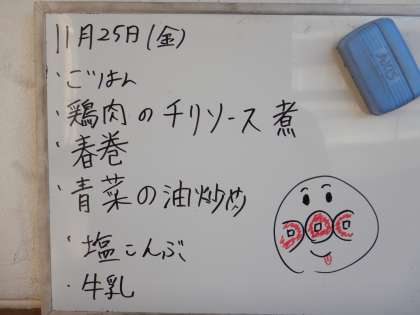 11月25日(金)
・ごはん
・鶏肉のチリソース煮
・春巻
・青菜の油炒め
・塩こんぶ
・牛乳